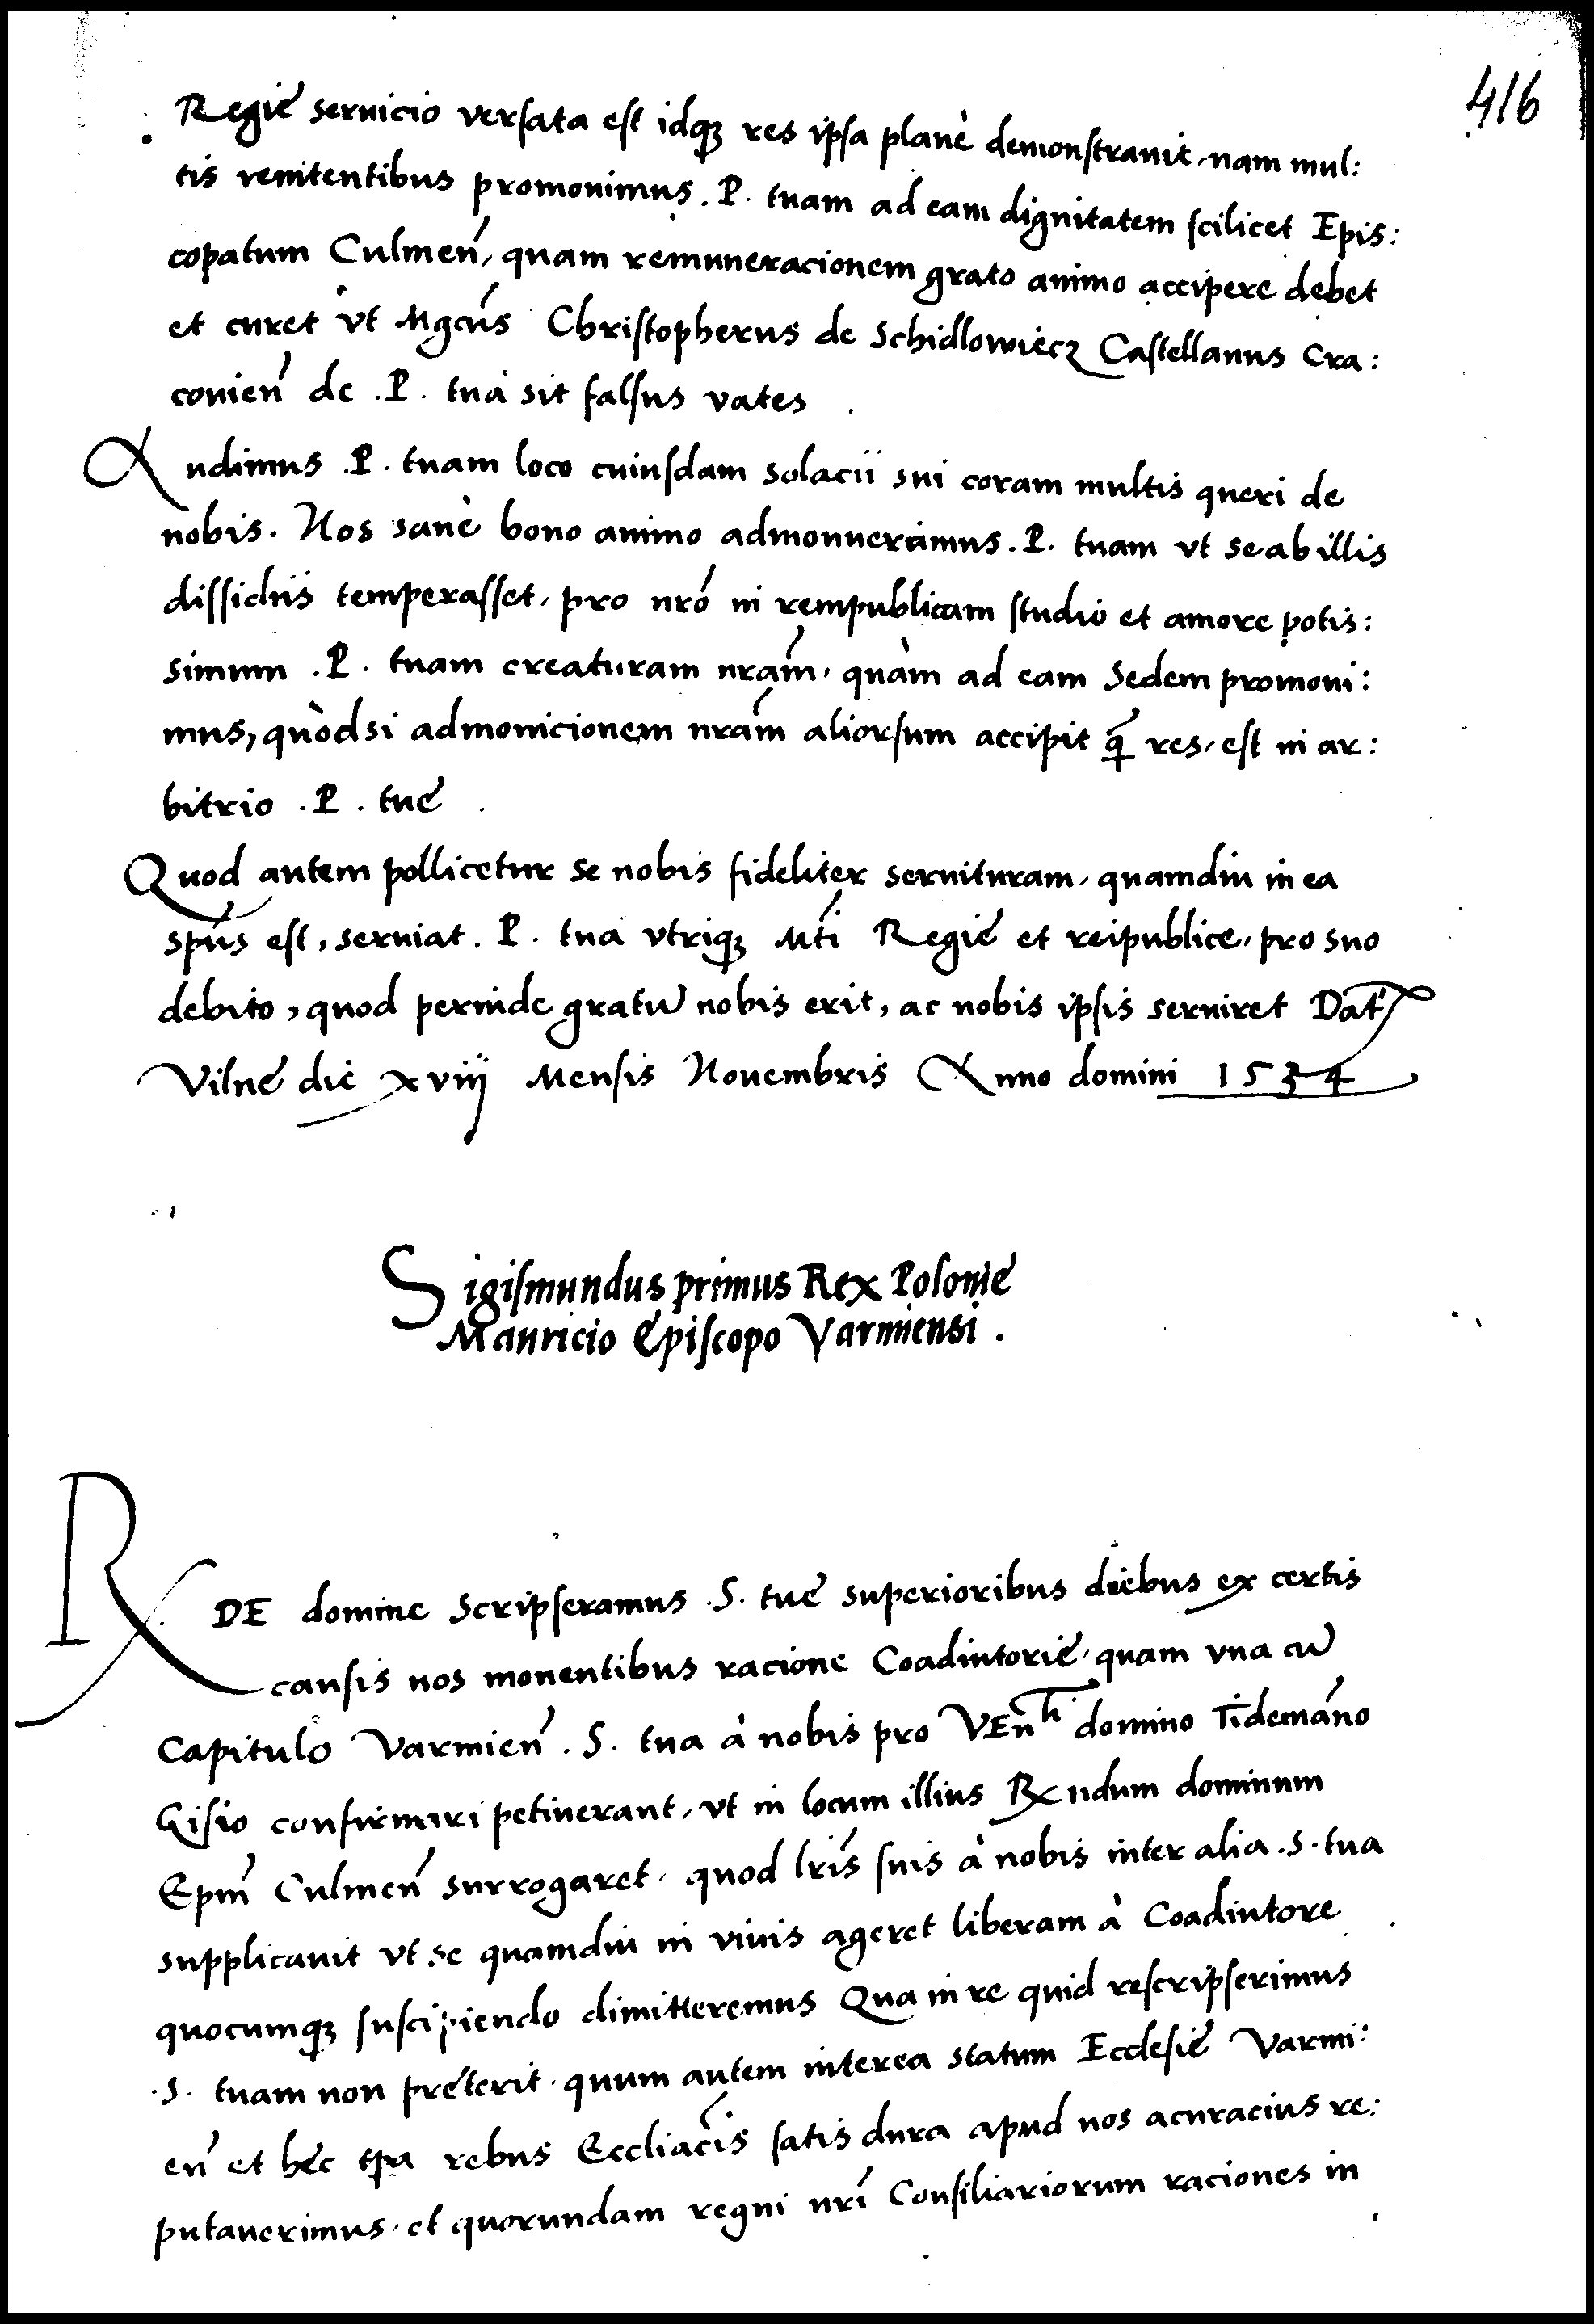 416
Regie servicio versata est idqȝ res ipsa planè demonstravit, nam mul:
tis renitentibus promovimus .P. tuam ad eam dignitatem scilicet Epis:
copatum Culmeń, quam remuneracionem grato animo accipere debet
et curet vt Mgcus Christopherus de Schidlowiecz Castellanus Cra:
covień de .P. tua sit falsus vates .
Audimus .P. tuam loco cuiusdam solacii sui coram multis queri de
nobis. Nos sanè bono animo admonueramus .P. tuam vt se ab illis
dissidiis temperasset, pro nrō in rempublicam studio et amore potis:
simum .P. tuam creaturam nrām, quàm ad eam Sedem promovi:
mus, quòd si admonicionem nrām aliorsum accipit q̄ res, est in ar:
bitrio .P. tuę .
Quod autem pollicetur se nobis fideliter servituram, quamdiu in ea
spūs est, serviat .P. tua vtriqȝ Mti Regię et reipublice, pro suo
debito, quod perinde gratū nobis erit, ac nobis ipsis serviret Dat
Vilnę die xviij Mensis Novembris Anno domini 1534
Sigismundus primus Rex Polonię
Mauricio Episcopo Varmiensi .
RDE domine Scripseramus .S. tuę superioribus diebus ex certis
causis nos moventibus racione Coadiutorię, quam vna cū
Capitulo Varmień .S. tua à nobis pro VEnli domino Tidemāno
Gisio confirmari petiverant, vt in locum illius Rndum dominum
Epm̄ Culmeń surrogaret, quod lrīs suis à nobis inter alia .S. tua
supplicavit vt se quamdiu in vivis ageret liberam à Coadiutore
quocumqȝ suscipiendo dimitteremus Qua in re quid rescripserimus
.S. tuam non pręterit, quum autem interea statum Ecclesię Varmi:
eń et hęc tpra rebus Eccliacis satis dura apud nos acuracius re:
putaverimus, et quorundam regni nrī Consiliariorum raciones in